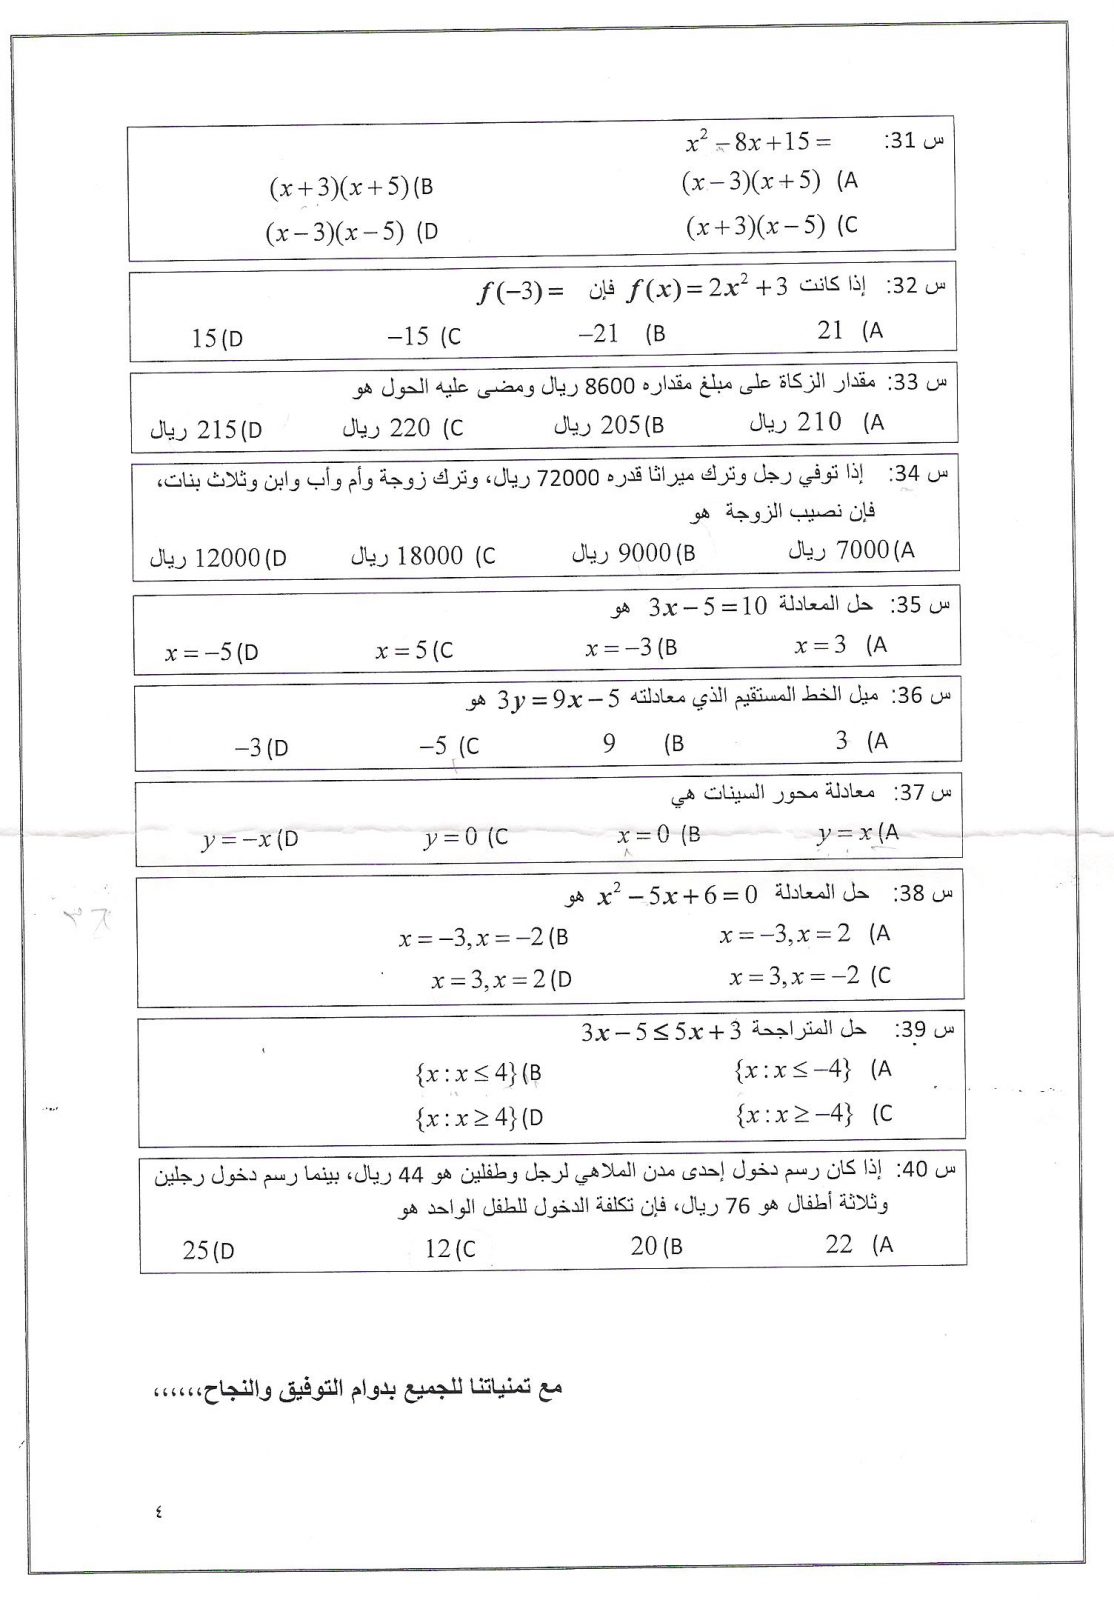 س 31: x² − 8x + 15 =
A) (x − 3)(x + 5) B) (x + 3)(x + 5)
C) (x + 3)(x − 5) D) (x − 3)(x − 5)
س 32: إذا كانت f(x) = 2x² + 3 فإن f(−3) =
A) 21 B) −21 C) −15 D) 15
س 33: مقدار الزكاة على مبلغ مقداره 8600 ريال ومضى عليه الحول هو
A) 210 ريال B) 205 ريال C) 220 ريال D) 215 ريال
س 34: إذا توفي رجل وترك ميراثا قدره 72000 ريال، وترك زوجة وأم وأب وابن وثلاث بنات،
فإن نصيب الزوجة هو
A) 7000 ريال B) 9000 ريال C) 18000 ريال D) 12000 ريال
س 35: حل المعادلة 3x − 5 = 10 هو
A) x = 3 B) x = −3 C) x = 5 D) x = −5
س 36: ميل الخط المستقيم الذي معادلته 3y = 9x − 5 هو
A) 3 B) 9 C) −5 D) −3
س 37: معادلة محور السينات هي
A) y = x B) x = 0 C) y = 0 D) y = −x
س 38: حل المعادلة x² − 5x + 6 = 0 هو
A) x = −3, x = 2 B) x = −3, x = −2
C) x = 3, x = −2 D) x = 3, x = 2
س 39: حل المتراجحة 3x − 5 ≤ 5x + 3
A) {x : x ≤ −4} B) {x : x ≤ 4}
C) {x : x ≥ −4} D) {x : x ≥ 4}
س 40: إذا كان رسم دخول إحدى مدن الملاهي لرجل وطفلين هو 44 ريال، بينما رسم دخول رجلين
وثلاثة أطفال هو 76 ريال، فإن تكلفة الدخول للطفل الواحد هو
A) 22 B) 20 C) 12 D) 25
مع تمنياتنا للجميع بدوام التوفيق والنجاح،،،،،،
٤